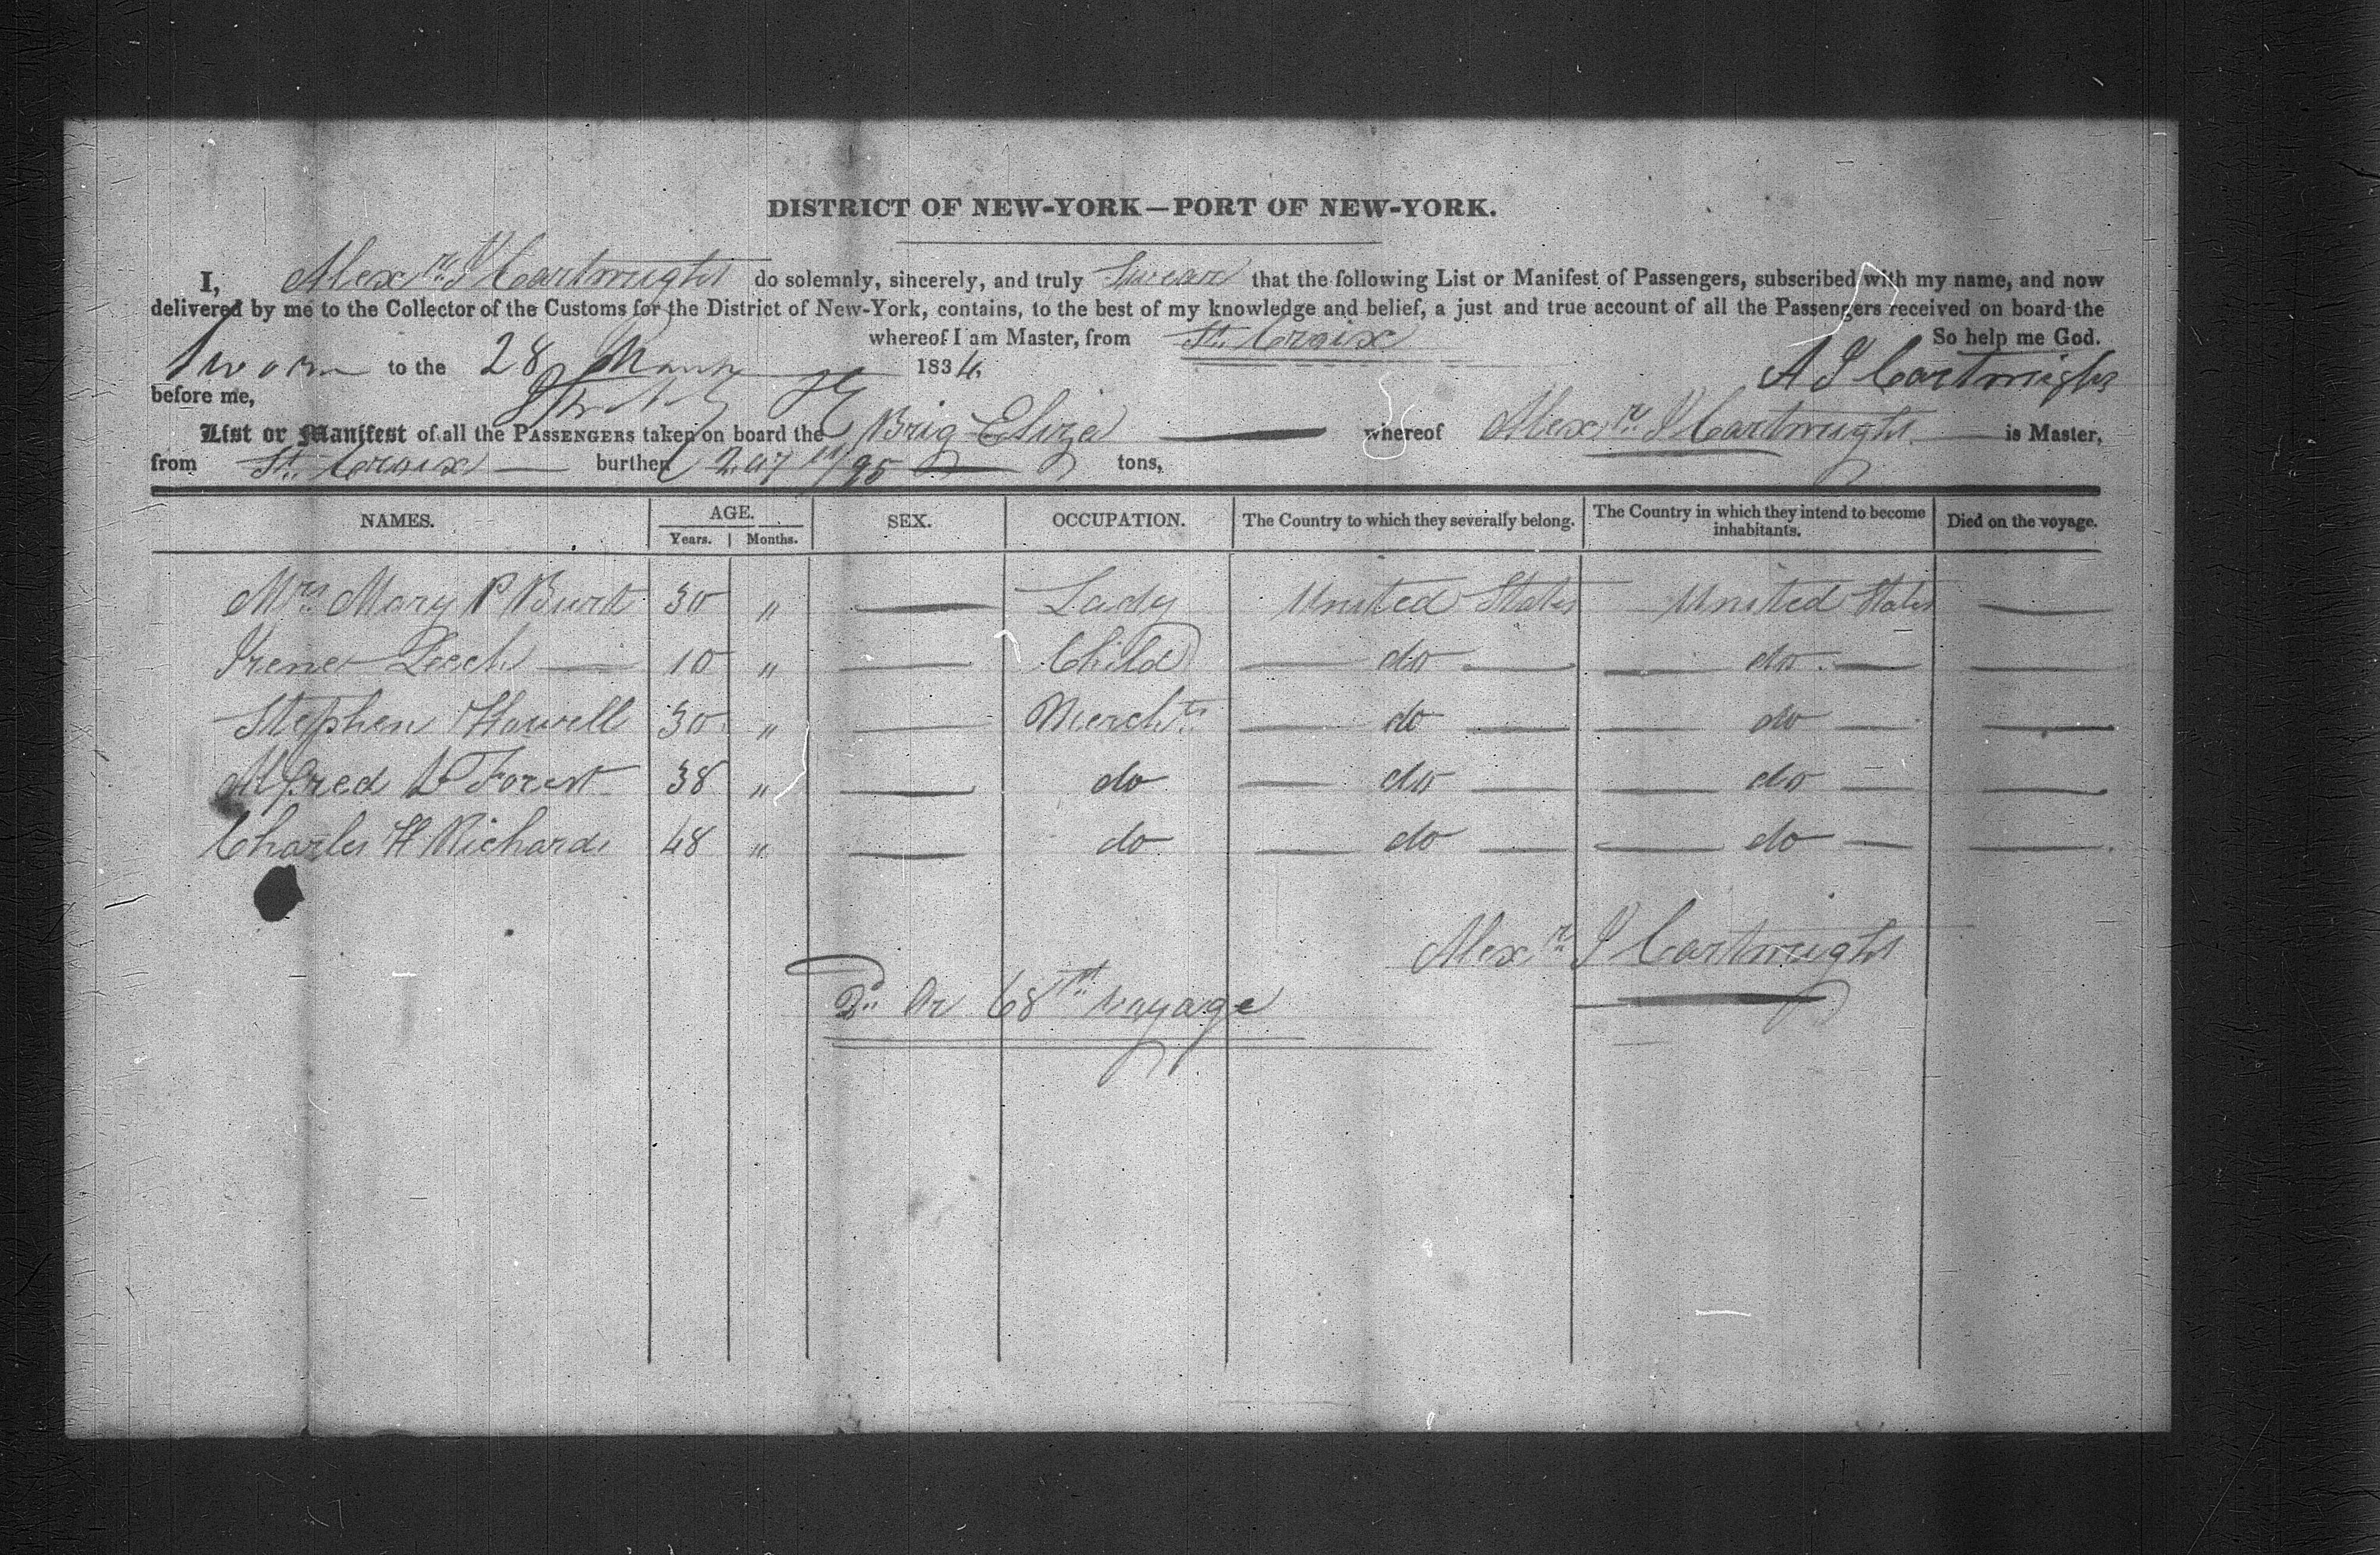 DISTRICT OF NEW-YORK—PORT OF NEW-YORK.
I, Alexr. J Cartwright do solemnly, sincerely, and truly Swear that the following List or Manifest of Passengers, subscribed with my name, and now
delivered by me to the Collector of the Customs for the District of New-York, contains, to the best of my knowledge and belief, a just and true account of all the Passengers received on board the
whereof I am Master, from St. Croix So help me God.
Sworn to the 28 March 1834. A J Cartwright
before me,
List or Manifest of all the PASSENGERS taken on board the Brig Eliza whereof Alexr. J Cartwright is Master,
from St. Croix burthen 247 /95 tons,
NAMES. AGE. SEX. OCCUPATION. The Country to which they severally belong. The Country in which they intend to become inhabitants. Died on the voyage.
Years. Months.
Mrs. Mary P Burt 30 " — Lady United States United States —
Irene Leech — 10 " — Child — do — — do — —
Stephen Howell 30 " — Mercht. — do — — do — —
Alfred D Forest 38 " — do — do — — do — —
Charles H Richards 48 " — do — do — — do — —
Alexr. J Cartwright
2d. Or 68th voyage